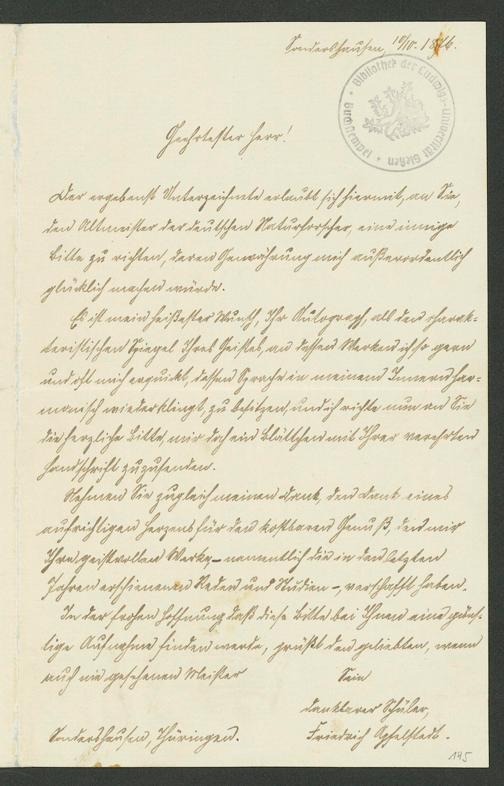 Sondershausen, 10/10. 1876.
Bibliothek der Ludwigs-Universität Gießen
Geehrtester Herr!
Der ergebenst Unterzeichnete erlaubt sich hiermit, an Sie,
den Altmeister der deutschen Naturforscher, eine innige
Bitte zu richten, deren Gewährung mich außerordentlich
glücklich machen würde.
Es ist mein heißester Wunsch, Ihr Autograph, als den charak-
teristischen Spiegel Ihres Geistes, an dessen Werken ich so gern
und oft mich erquickt, dessen Sprache in meinem Innern har-
monisch wiederklingt, zu besitzen, und ich richte nun an Sie
die herzliche Bitte, mir doch ein Blättchen mit Ihrer verehrten
Handschrift zuzusenden.
Nehmen Sie zugleich meinen Dank, den Dank eines
aufrichtigen Herzens für den kostbaren Genuß, den mir
Ihre geistvollen Werke – namentlich die in den letzten
Jahren erschienenen Reden und Studien –, verschafft haben.
In der frohen Hoffnung daß diese Bitte bei Ihnen eine güns-
tige Aufnahme finden werde, grüßt den geliebten, wenn
auch nie gesehenen Meister
Sein
dankbarer Schüler,
Friedrich Apfelstedt.
Sondershausen, Thüringen.
195